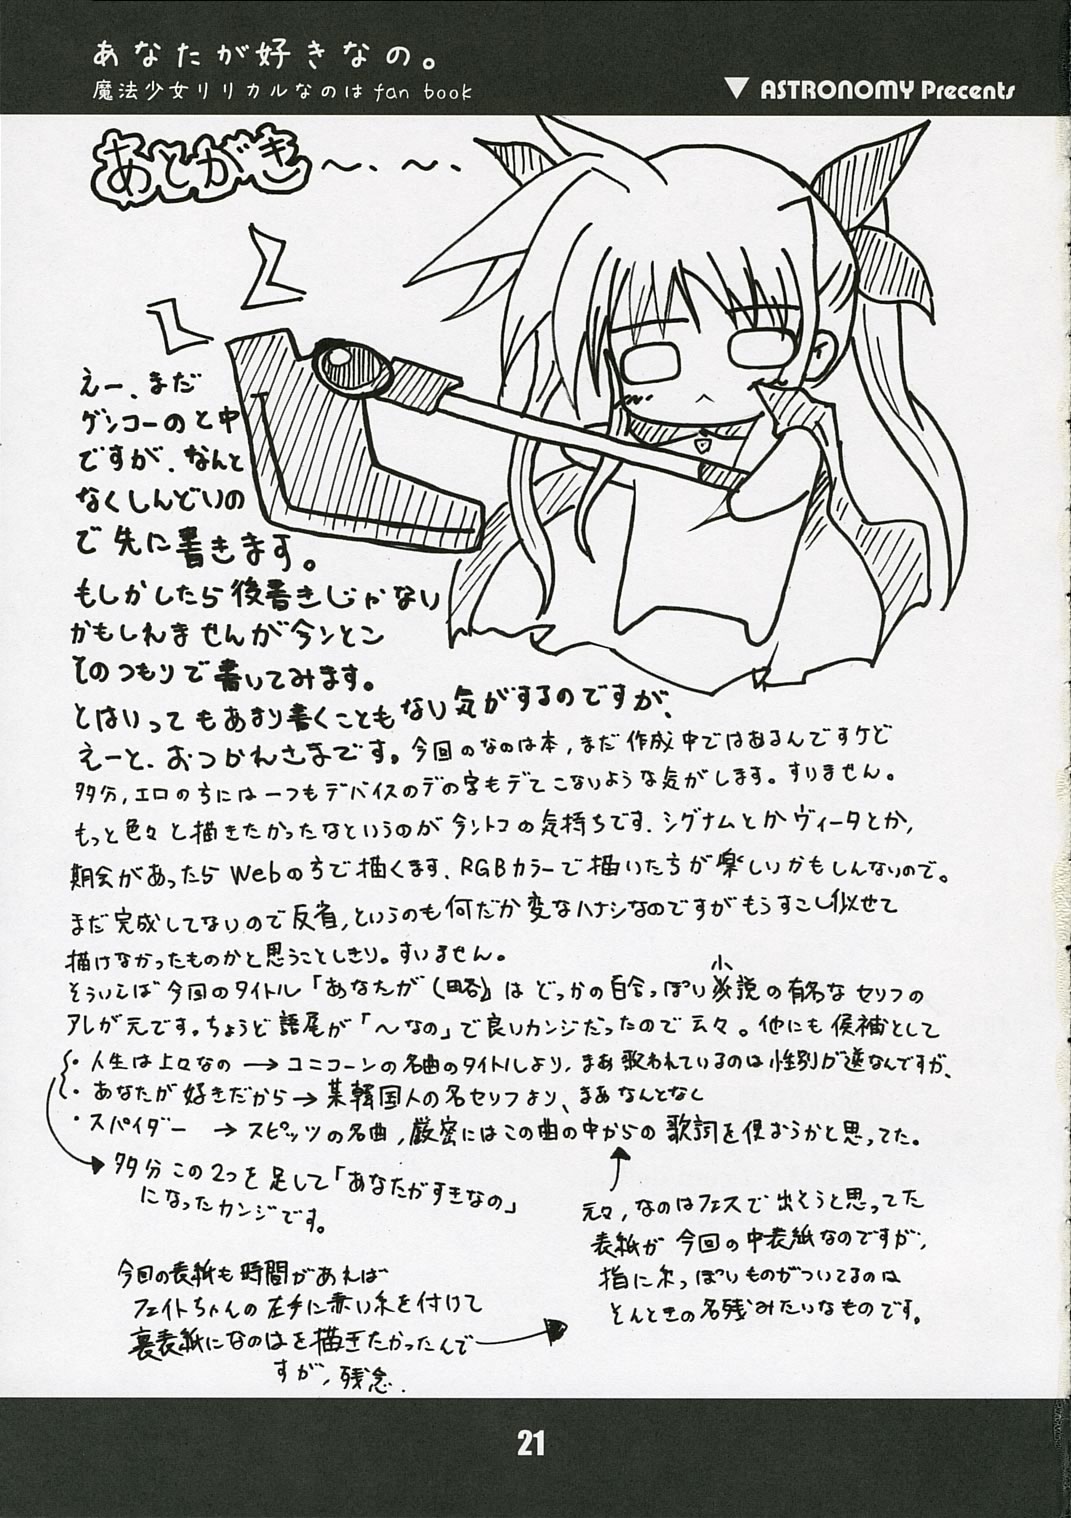 あなたが好きなの。
魔法少女リリカルなのは fan book
▼ ASTRONOMY Precents
あとがき〜、〜、
えー、まだ
ゲンコーのと中
ですが、なんと
なくしんどいの
で先に書きます。
もしかしたら後書きじゃない
かもしれませんが今ンとこ
そのつもりで書いてみます。
とはいってもあまり書くこともない気がするのですが、
えーと、おつかれさまです。今回のなのは本,まだ作成中ではあるんですケど
多分,エロのちには一つもデバイスのデの字もデてこないような気がします。すいません。
もっと色々と描きたかったなというのが今ントコの気持ちです.シグナムとかヴィータとか,
期会があったらWebの方で描くます、RGBカラーで描いた方が楽しいかもしんないので。
まだ完成してないので反省,というのも何だか変なハナシなのですがもうすこし似せて
描けなかったものかと思うことしきり。すいません。
そういえば今回のタイトル「あなたが(略)」はどっかの百合っぽい小説の有名なセリフの
アレが元です。ちょうど語尾が「〜なの」で良いカンジだったので云々。他にも候補として
・人生は上々なの → ユニコーンの名曲のタイトルより,まあ歌われているのは性別が逆なんですが、
・あなたが好きだから→某韓国人の名セリフより、まあなんとなく
・スパイダー → スピッツの名曲,厳密にはこの曲の中からの歌詞を使おうかと思ってた。
多分この2つを足して「あなたがすきなの」
になったカンジです。
元々,なのはフェスで出そうと思ってた
表紙が今回の中表紙なのですが,
指に糸っぽいものがついてるのは
そんときの名残みたいなものです。
今回の表紙も時間があれば
フェイトちゃんの左手に赤い糸を付けて
裏表紙になのはを描きたかったんで
すが,残念.
21